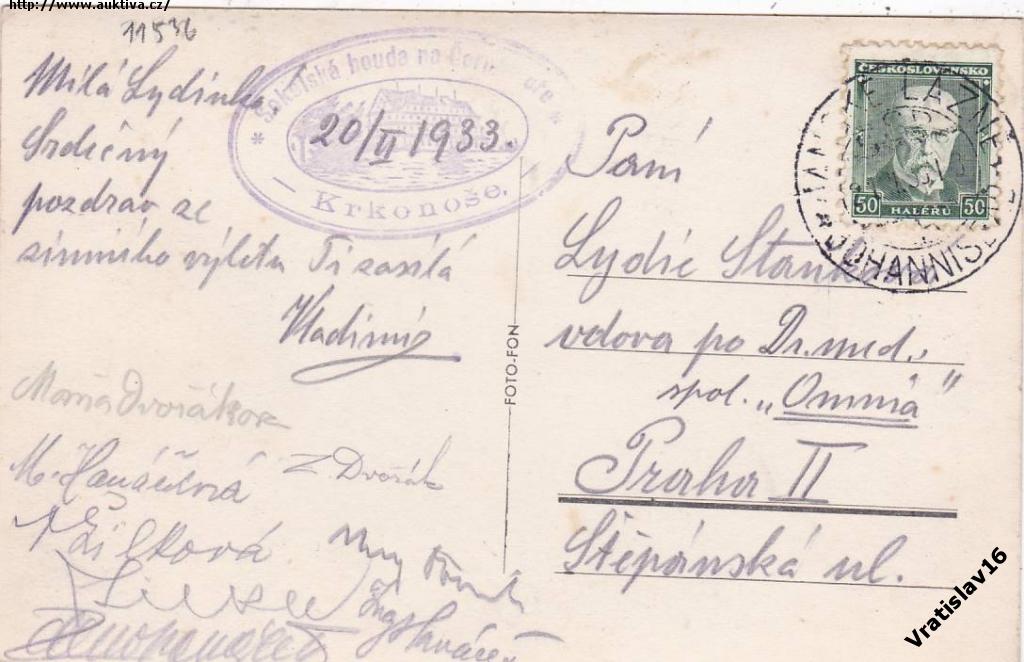 http://www.auktiva.cz/
11536
Milá Lydinko
Srdečný
pozdrav ze
zimního výletu Ti zasílá
Vladimír
Dvořákov
M. Hanáčíková
Z. Dvořák
Žilková
Ing
* Sokolská bouda na Černé hoře *
20/II 1933.
– Krkonoše. –
FOTO-FON
ČESKOSLOVENSKO
50 50
HALÉŘŮ
JANSKÉ LÁZNĚ
JOHANNISBAD
Paní
Lydie
vdova po Dr. med.
spol. „Omnia“
Praha II
Štěpánská ul.
Vratislav16